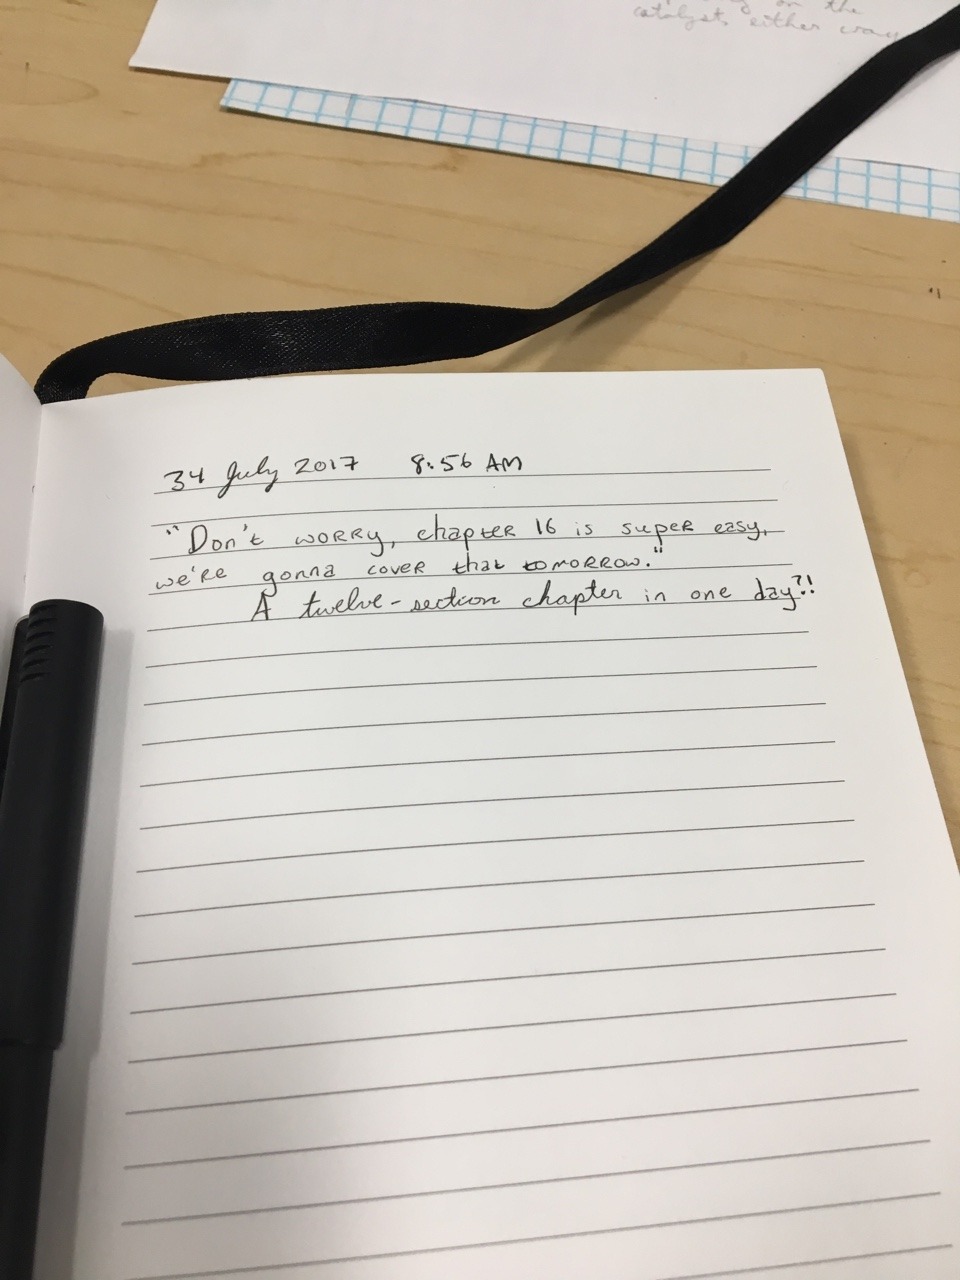 on the
catalyst, either way
34 July 2017 8:56 AM
"Don't worry, chapter 16 is super easy,
we're gonna cover that tomorrow."
A twelve-section chapter in one day?!